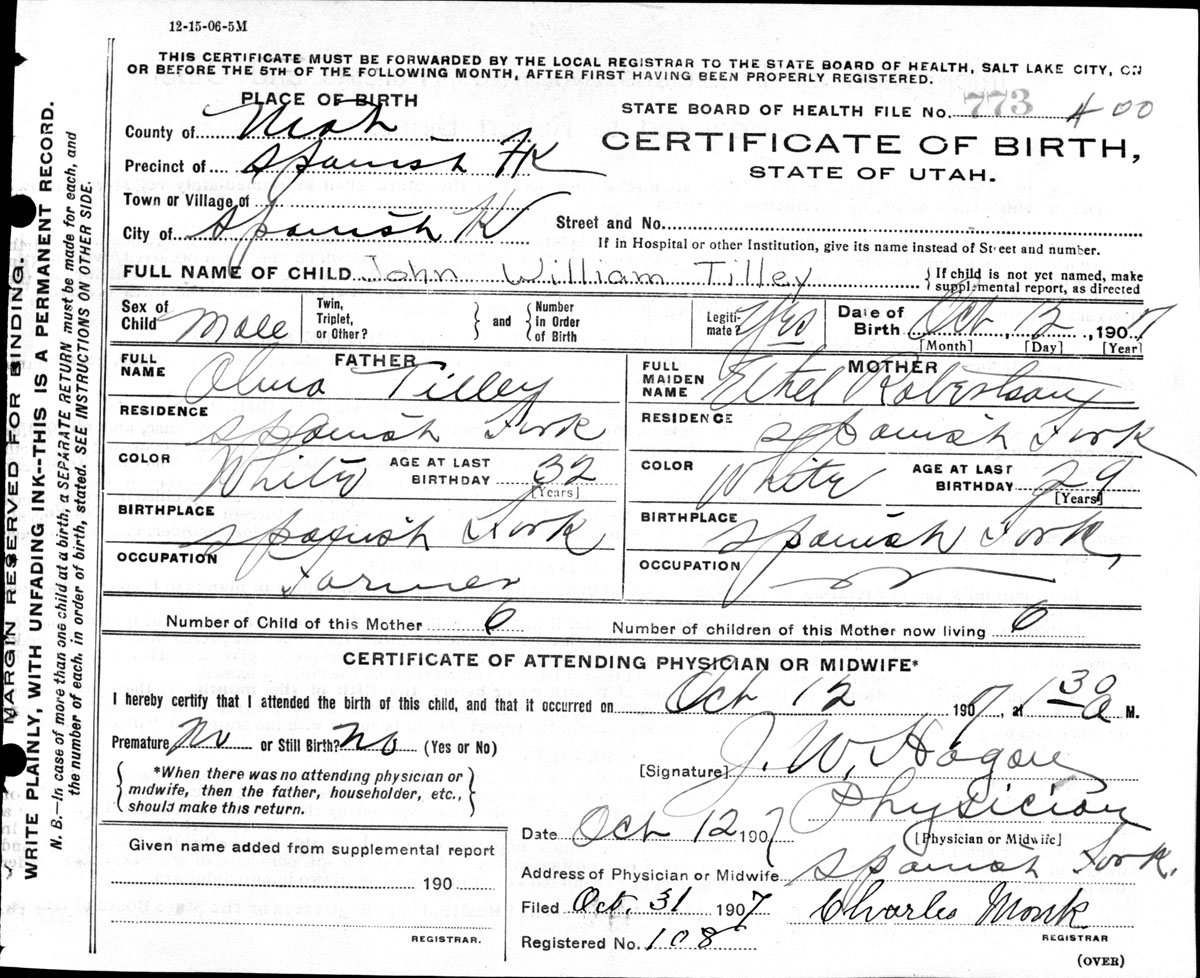 12-15-06-5M
THIS CERTIFICATE MUST BE FORWARDED BY THE LOCAL REGISTRAR TO THE STATE BOARD OF HEALTH, SALT LAKE CITY, ON
OR BEFORE THE 5TH OF THE FOLLOWING MONTH, AFTER FIRST HAVING BEEN PROPERLY REGISTERED.
MARGIN RESERVED FOR BINDING.
WRITE PLAINLY, WITH UNFADING INK--THIS IS A PERMANENT RECORD.
N. B.—In case of more than one child at a birth, a SEPARATE RETURN must be made for each, and
the number of each, in order of birth, stated. SEE INSTRUCTIONS ON OTHER SIDE.
PLACE OF BIRTH
County of Utah
Precinct of Spanish Fk
Town or Village of
City of Spanish Fk
STATE BOARD OF HEALTH FILE No. 773 400
CERTIFICATE OF BIRTH,
STATE OF UTAH.
Street and No.
If in Hospital or other Institution, give its name instead of Street and number.
FULL NAME OF CHILD John William Tilley
{If child is not yet named, make
supplemental report, as directed
Sex of Child Male
Twin, Triplet, or Other? } and { Number in Order of Birth
Legitimate? Yes
Date of Birth Oct, 12, 1907
[Month] [Day] [Year]
FATHER
FULL NAME Tilley
RESIDENCE Spanish Fork
COLOR White AGE AT LAST BIRTHDAY 32
[Years]
BIRTHPLACE Spanish Fork
OCCUPATION Farmer
MOTHER
FULL MAIDEN NAME Ethel Robertson
RESIDENCE Spanish Fork
COLOR White AGE AT LAST BIRTHDAY 29
[Years]
BIRTHPLACE Spanish Fork,
OCCUPATION
Number of Child of this Mother 6 Number of children of this Mother now living 6
CERTIFICATE OF ATTENDING PHYSICIAN OR MIDWIFE*
I hereby certify that I attended the birth of this child, and that it occurred on Oct 12 1907, at 1 30 a M.
Premature No or Still Birth? No (Yes or No)
*When there was no attending physician or
midwife, then the father, householder, etc.,
should make this return.
[Signature] J. W. Hagan
Physician
[Physician or Midwife]
Date Oct 12 1907
Address of Physician or Midwife Spanish Fork.
Given name added from supplemental report
190
REGISTRAR.
Filed Oct, 31 1907 Charles Monk
REGISTRAR
Registered No. 108
(OVER)